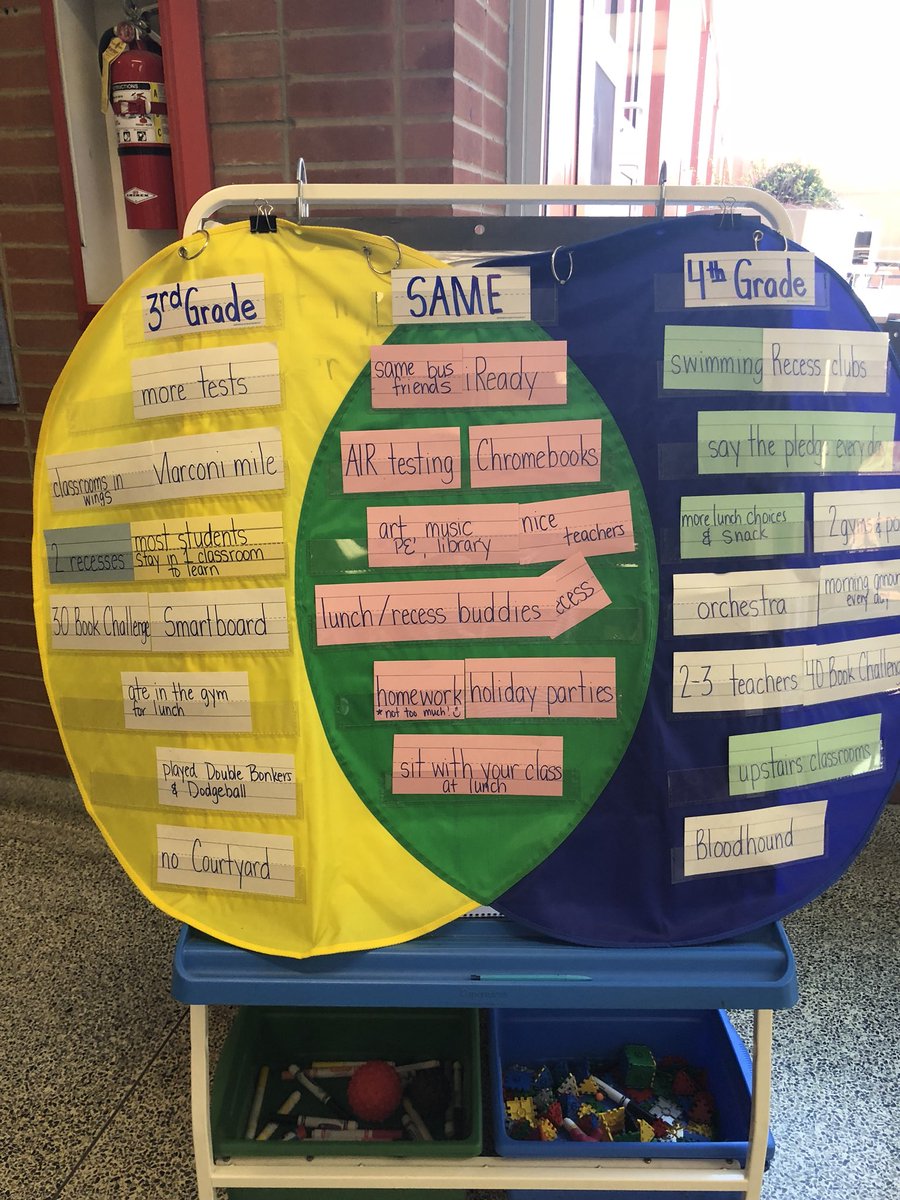 3rd Grade
more tests
classrooms in
wings
Marconi mile
2 recesses
most students
stay in 1 classroom
to learn
30 Book Challenge
Smartboard
ate in the gym
for lunch
played Double Bonkers
& Dodgeball
no Courtyard
SAME
same bus
friends
iReady
AIR testing
Chromebooks
art, music
PE, library
nice
teachers
lunch/recess buddies
homework
*not too much!
holiday parties
sit with your class
at lunch
4th Grade
swimming
Recess clubs
say the pledge every day
more lunch choices
& snack
2 gyms &
orchestra
morning
every day
2-3 teachers
40 Book Challeng
upstairs classrooms
Bloodhound